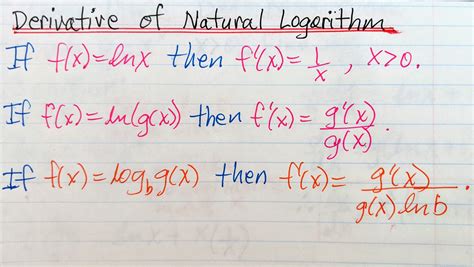 Derivative of Natural Logarithm
If f(x)=lnx then f'(x)=1/x , x>0.
If f(x)=ln(g(x)) then f'(x)=g'(x)/g(x).
If f(x)=log_b g(x) then f'(x)=g'(x)/g(x)lnb.